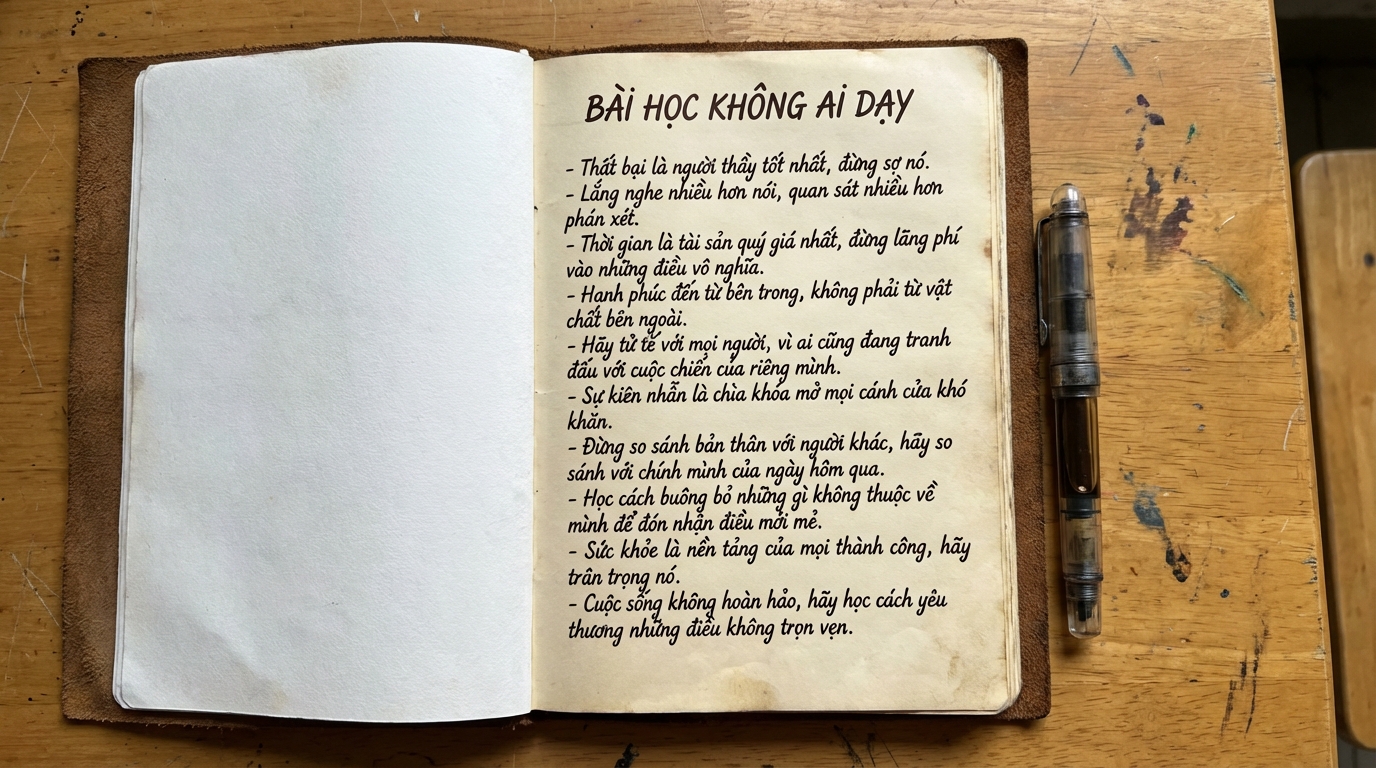 BÀI HỌC KHÔNG AI DẠY
- Thất bại là người thầy tốt nhất, đừng sợ nó.
- Lắng nghe nhiều hơn nói, quan sát nhiều hơn
phán xét.
- Thời gian là tài sản quý giá nhất, đừng lãng phí
vào những điều vô nghĩa.
- Hạnh phúc đến từ bên trong, không phải từ vật
chất bên ngoài.
- Hãy tử tế với mọi người, vì ai cũng đang tranh
đấu với cuộc chiến của riêng mình.
- Sự kiên nhẫn là chìa khóa mở mọi cánh cửa khó
khăn.
- Đừng so sánh bản thân với người khác, hãy so
sánh với chính mình của ngày hôm qua.
- Học cách buông bỏ những gì không thuộc về
mình để đón nhận điều mới mẻ.
- Sức khỏe là nền tảng của mọi thành công, hãy
trân trọng nó.
- Cuộc sống không hoàn hảo, hãy học cách yêu
thương những điều không trọn vẹn.